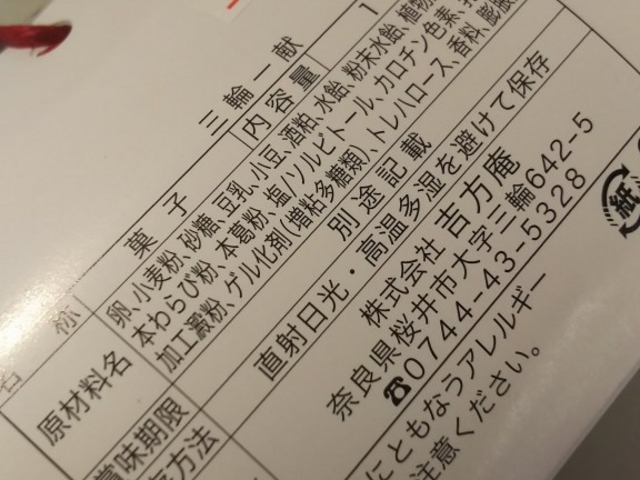 三輪一献
名 称 菓子 内容量 1
原材料名 卵、小麦粉、砂糖、豆乳、小豆、酒粕、水飴、粉末水飴、植物
本わらび粉、本葛粉、塩/ソルビトール、カロチン色素、
加工澱粉、ゲル化剤(増粘多糖類)、トレハロース、香料、膨脹
賞味期限 別途記載
存方法 直射日光・高温多湿を避けて保存
株式会社 吉方庵
奈良県桜井市大字三輪642-5
☎0744-43-5328
にともなうアレルギー
注意ください。
紙